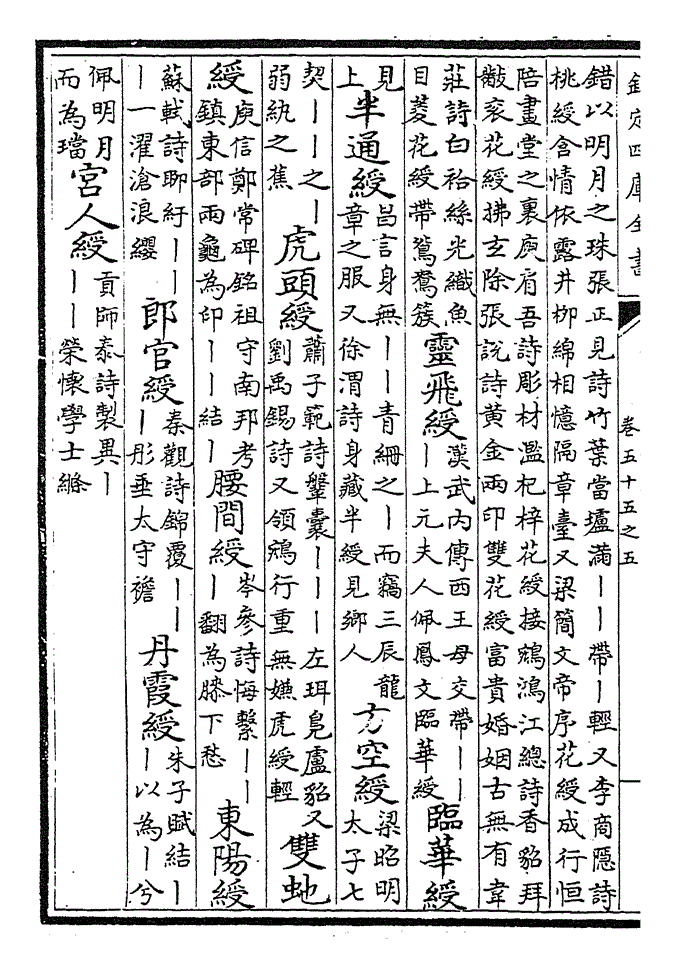 欽定四庫全書
卷五十五之五
錯以明月之珠張正見詩竹葉當壚滿――帶―輕又李商隱詩
桃綬含情依露井柳綿相憶隔章臺又梁簡文帝序花綬成行恒
陪畫堂之裏庾肩吾詩彫材濫杞梓花綬接鵷鴻江總詩香貂拜
黻衮花綬拂玄除張說詩黃金兩印雙花綬富貴婚姻古無有韋
莊詩白袷絲光織魚
目菱花綬帶鴛鴦簇
靈飛綬
漢武内傳西王母交帶――
―上元夫人佩鳳文臨華綬
臨華綬
見
上
半通綬
昌言身無――青綸之―而竊三辰龍
章之服又徐渭詩身藏半綬見鄉人
方空綬
梁昭明
太子七
契――之―
弱紈之蕉
虎頭綬
蕭子範詩鞶囊―――左珥鳧盧貂又
劉禹錫詩又領鵷行重無嫌虎綬輕
雙虵
綬
庾信鄭常碑銘祖守南邦考
鎮東部兩龜為印――結―
腰間綬
岑參詩悔繫――
―翻為膝下愁
東陽綬
蘇軾詩聊紆――
―一濯滄浪纓
郎官綬
秦觀詩錦覆――
―彤垂太守襜
丹霞綬
朱子賦結―
―以為―兮
佩明月
而為璫
宮人綬
貢師泰詩製異―
――榮懷學士縧